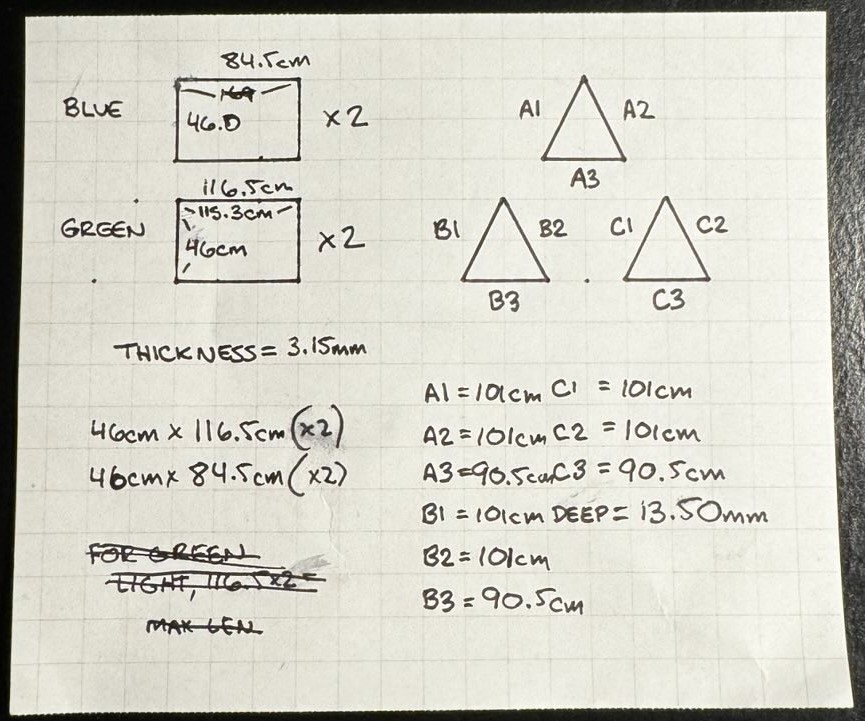 84.5cm
BLUE
169
46.0
x2
116.5cm
GREEN
115.3cm
46cm
x2
A1
A2
A3
B1
B2
B3
C1
C2
C3
THICKNESS = 3.15mm
46cm x 116.5cm (x2)
46cm x 84.5cm (x2)
FOR GREEN
LIGHT, 116.5x2=
MAX LEN
A1 = 101cm C1 = 101cm
A2 = 101cm C2 = 101cm
A3 = 90.5cm C3 = 90.5cm
B1 = 101cm DEEP = 13.50mm
B2 = 101cm
B3 = 90.5cm